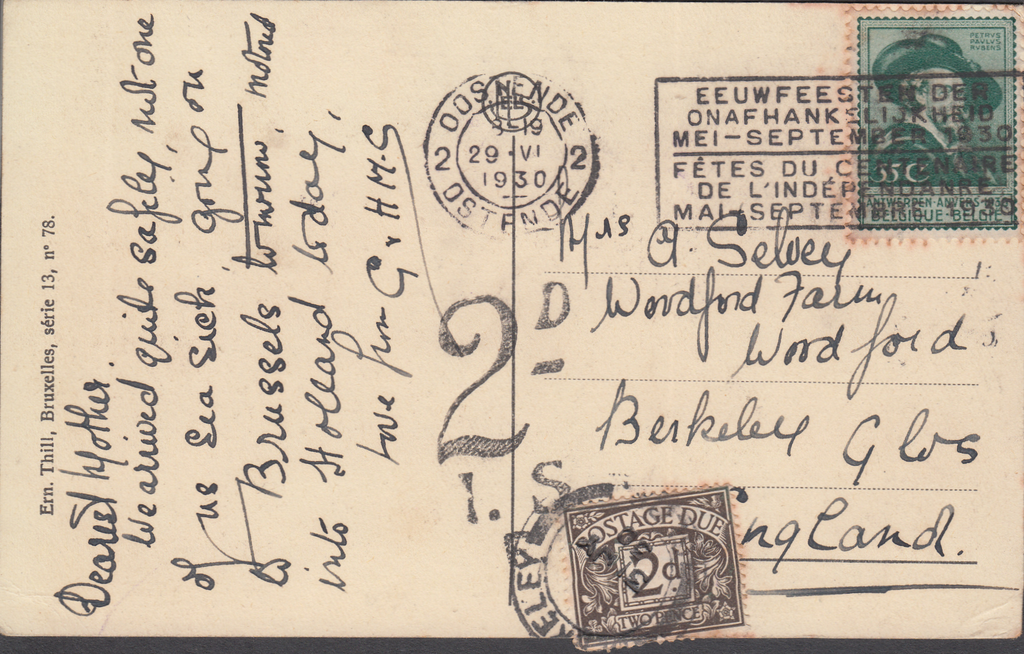 Ern. Thill, Bruxelles, série 13, n° 78.
Dearest Mother.
We arrived quite safely, not one
of us sea sick, going on
to Brussels tomorrow, motored
into Holland today,
Love from G & H M.G
OOSTENDE
8-19
2 29 · VI 2
1930
OSTENDE
EEUWFEESTEN DER
ONAFHANKELIJKHEID
MEI-SEPTEMBER 1930
FÊTES DU CENTENAIRE
DE L'INDÉPENDANCE
MAI-SEPTEMBRE 1930
PETRVS
PAVLVS
RVBENS
35 C
ANTWERPEN-ANVERS 1930
BELGIQUE-BELGIË
Mrs A. Selvey
Woodford Farm
Woodford
Berkeley Glos
England.
2 D
I. S.
POSTAGE DUE
2d
TWO PENCE
KELEY